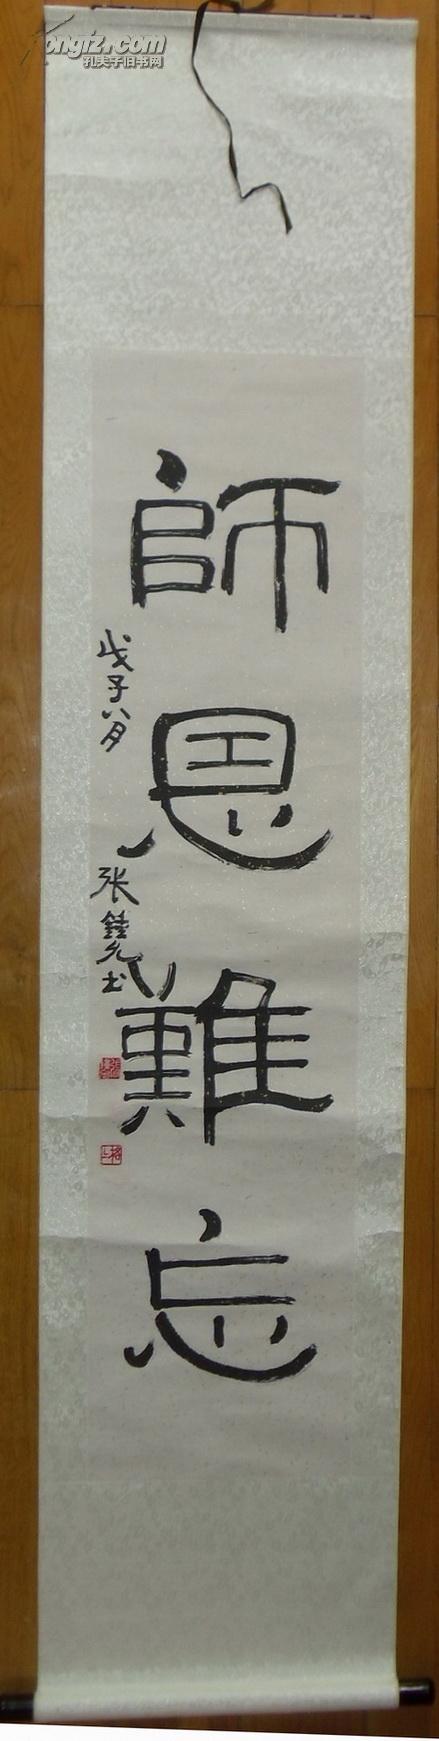 Kongfz.com
孔夫子旧书网
師恩難忘
戊子八月
张锺允书